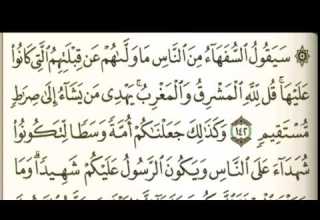 سَيَقُولُ السُّفَهَآءُ مِنَ النَّاسِ مَا وَلَّىٰهُمْ عَن قِبْلَتِهِمُ الَّتِى كَانُوا۟
عَلَيْهَا ۚ قُل لِّلَّهِ الْمَشْرِقُ وَالْمَغْرِبُ ۚ يَهْدِى مَن يَشَآءُ إِلَىٰ صِرَٰطٍ
مُّسْتَقِيمٍ ١٤٢ وَكَذَٰلِكَ جَعَلْنَٰكُمْ أُمَّةً وَسَطًا لِّتَكُونُوا۟
شُهَدَآءَ عَلَى النَّاسِ وَيَكُونَ الرَّسُولُ عَلَيْكُمْ شَهِيدًا ۗ وَمَا